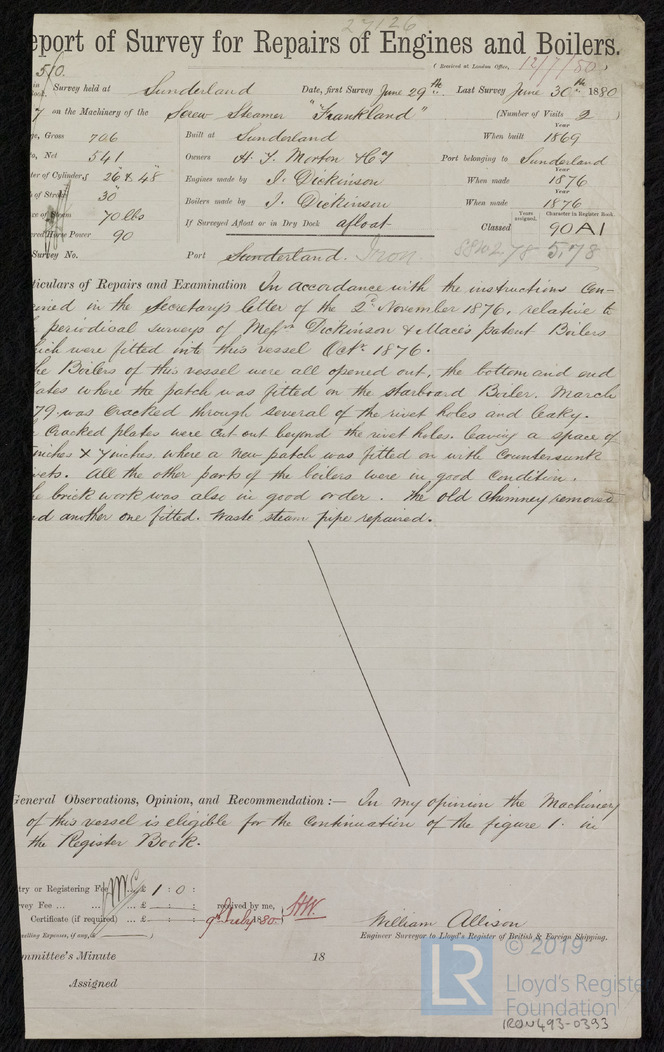 27126
eport of Survey for Repairs of Engines and Boilers.
(Received at London Office, 12/7/80)
50.
Survey held at Sunderland Date, first Survey June 29th Last Survey June 30th 1880
on the Machinery of the Screw Steamer "Frankland" (Number of Visits 2)
Gross 706 Built at Sunderland When built Year 1869
Net 541 Owners H. T. Morton & Co Port belonging to Sunderland
ter of Cylinders 26 & 48" Engines made by J. Dickinson When made Year 1876
of Stroke 30" Boilers made by J. Dickinson When made Year 1876
70 lbs If Surveyed Afloat or in Dry Dock afloat Classed Years assigned. Character in Register Book. 90 A1
Horse Power 90
Survey No. Port Sunderland. Iron 5,78
ticulars of Repairs and Examination In accordance with the instructions con-
ained in the Secretary's letter of the 2d November 1876, relative to
periodical surveys of Messrs Dickinson & Mace's patent Boilers
hich were fitted into this vessel Octr 1876.
he Boilers of this vessel were all opened out, the bottom and end
lates where the patch was fitted on the starboard Boiler. March
79 was cracked through several of the rivet holes and leaky.
cracked plates were cut out beyond the rivet holes. leaving a space of
inches X 7 inches. where a new patch was fitted on with Countersunk
vets. All the other parts of the boilers were in good condition.
he brick work was also in good order. The old Chimney removed
nd another one fitted. Waste steam pipe repaired.
General Observations, Opinion, and Recommendation:— In my opinion the Machinery
of this vessel is eligible for the Continuation of the figure 1. in
the Register Book.
try or Registering Fee ... £ 1 : 0 :
vey Fee ... ... £ : : received by me,
Certificate (if required) ... £ : : 9th July 1880
velling Expenses, if any, £ )
William Allison
Engineer Surveyor to Lloyd's Register of British & Foreign Shipping.
ommittee's Minute 18
Assigned
LR
© 2019
Lloyd's Register
Foundation
IRON493-0393